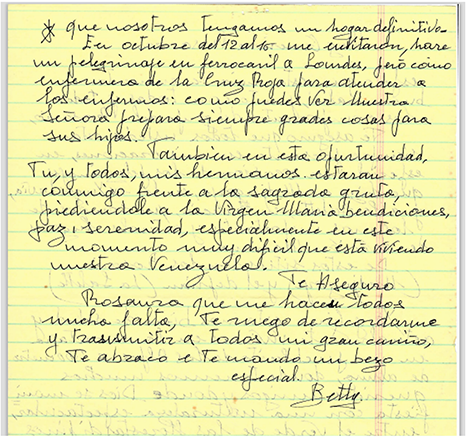 * que nosotros tengamos un hogar definitivo.
En octubre del 12 al 16 me invitaron, hare
un pelegrinaje en ferrocaril a Lourdes, però como
enfermera de la Cruz Roja para atender a
los enfermos: como puedes ver Nuestra
Señora prepara siempre grades cosas para
sus hijos.
Tambien en esta oportunidad,
Tu, y todos, mis hermanos estaran
conmigo frente a la sagrada gruta,
prediendole a la Virgen Maria bendiciones,
paz i serenidad, especialmente en este
momento muy dificil que està viviendo
nuestra Venezuela.
Te Aseguro
Rosaura que me hacen todos
mucha falta, Te ruego de recordarme
y trasmitir a todos mi gran cariño,
Te abrazo e Te mando un bezo
especial.
Betty